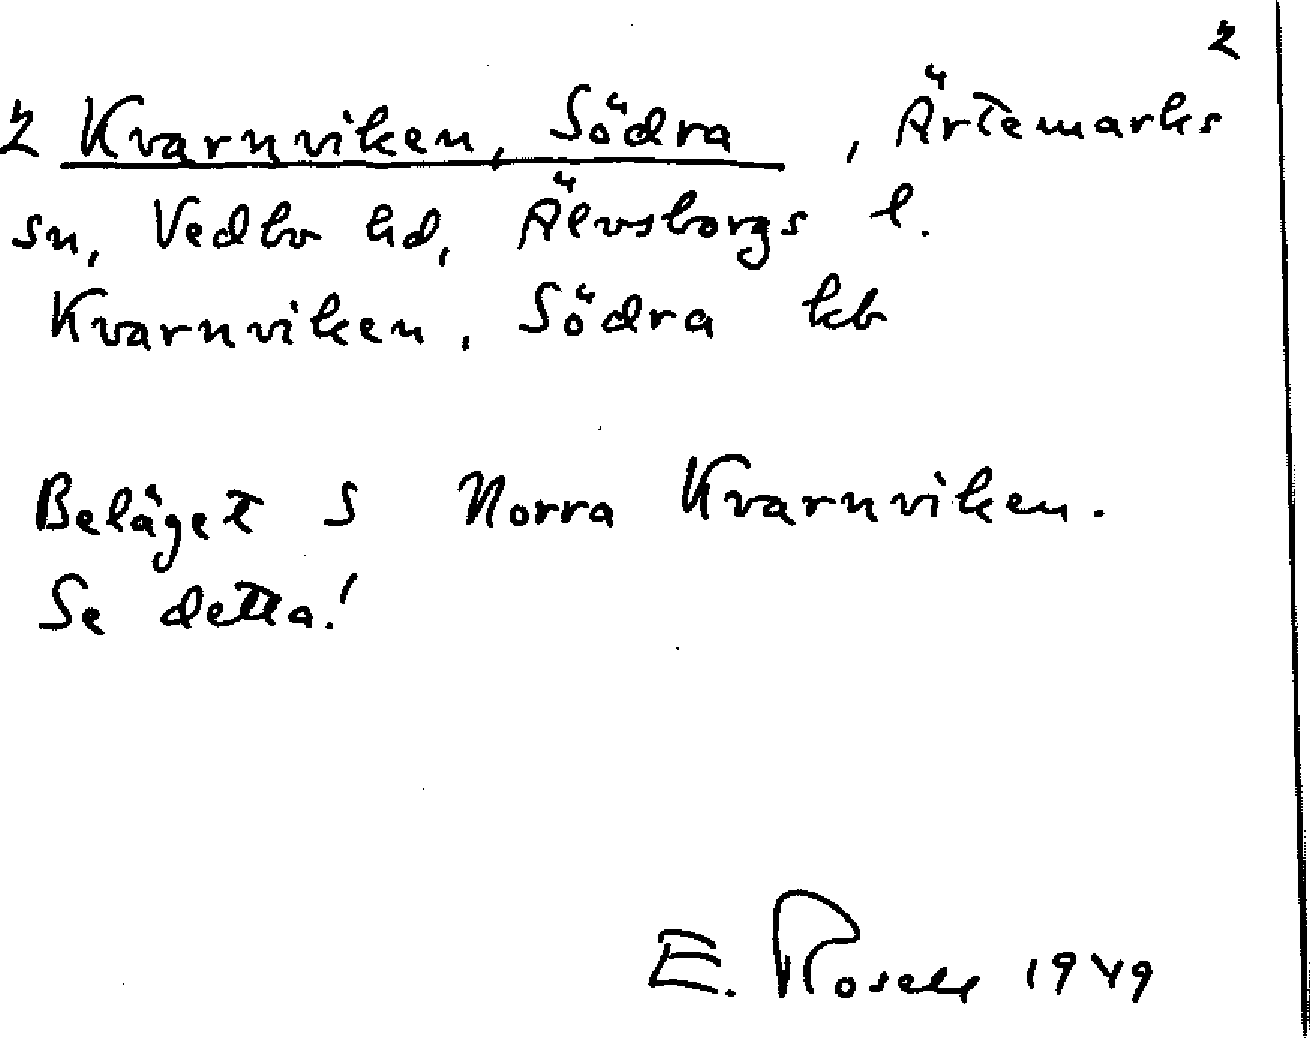 2
2 Kvarnviken, Södra, Ärtemarks
sn, Vedbo hd, Älvsborgs l.
Kvarnviken, Södra kb
Beläget S Norra Kvarnviken.
Se detta!
E. Rosell 1949